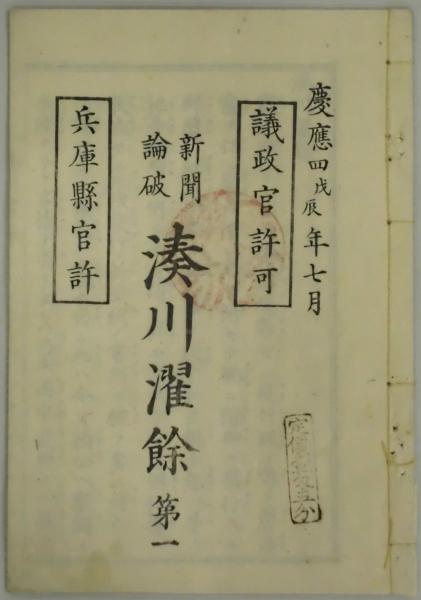 慶應四戊辰年七月
議政官許可
新聞
論破
湊川濯餘 第一
兵庫縣官許